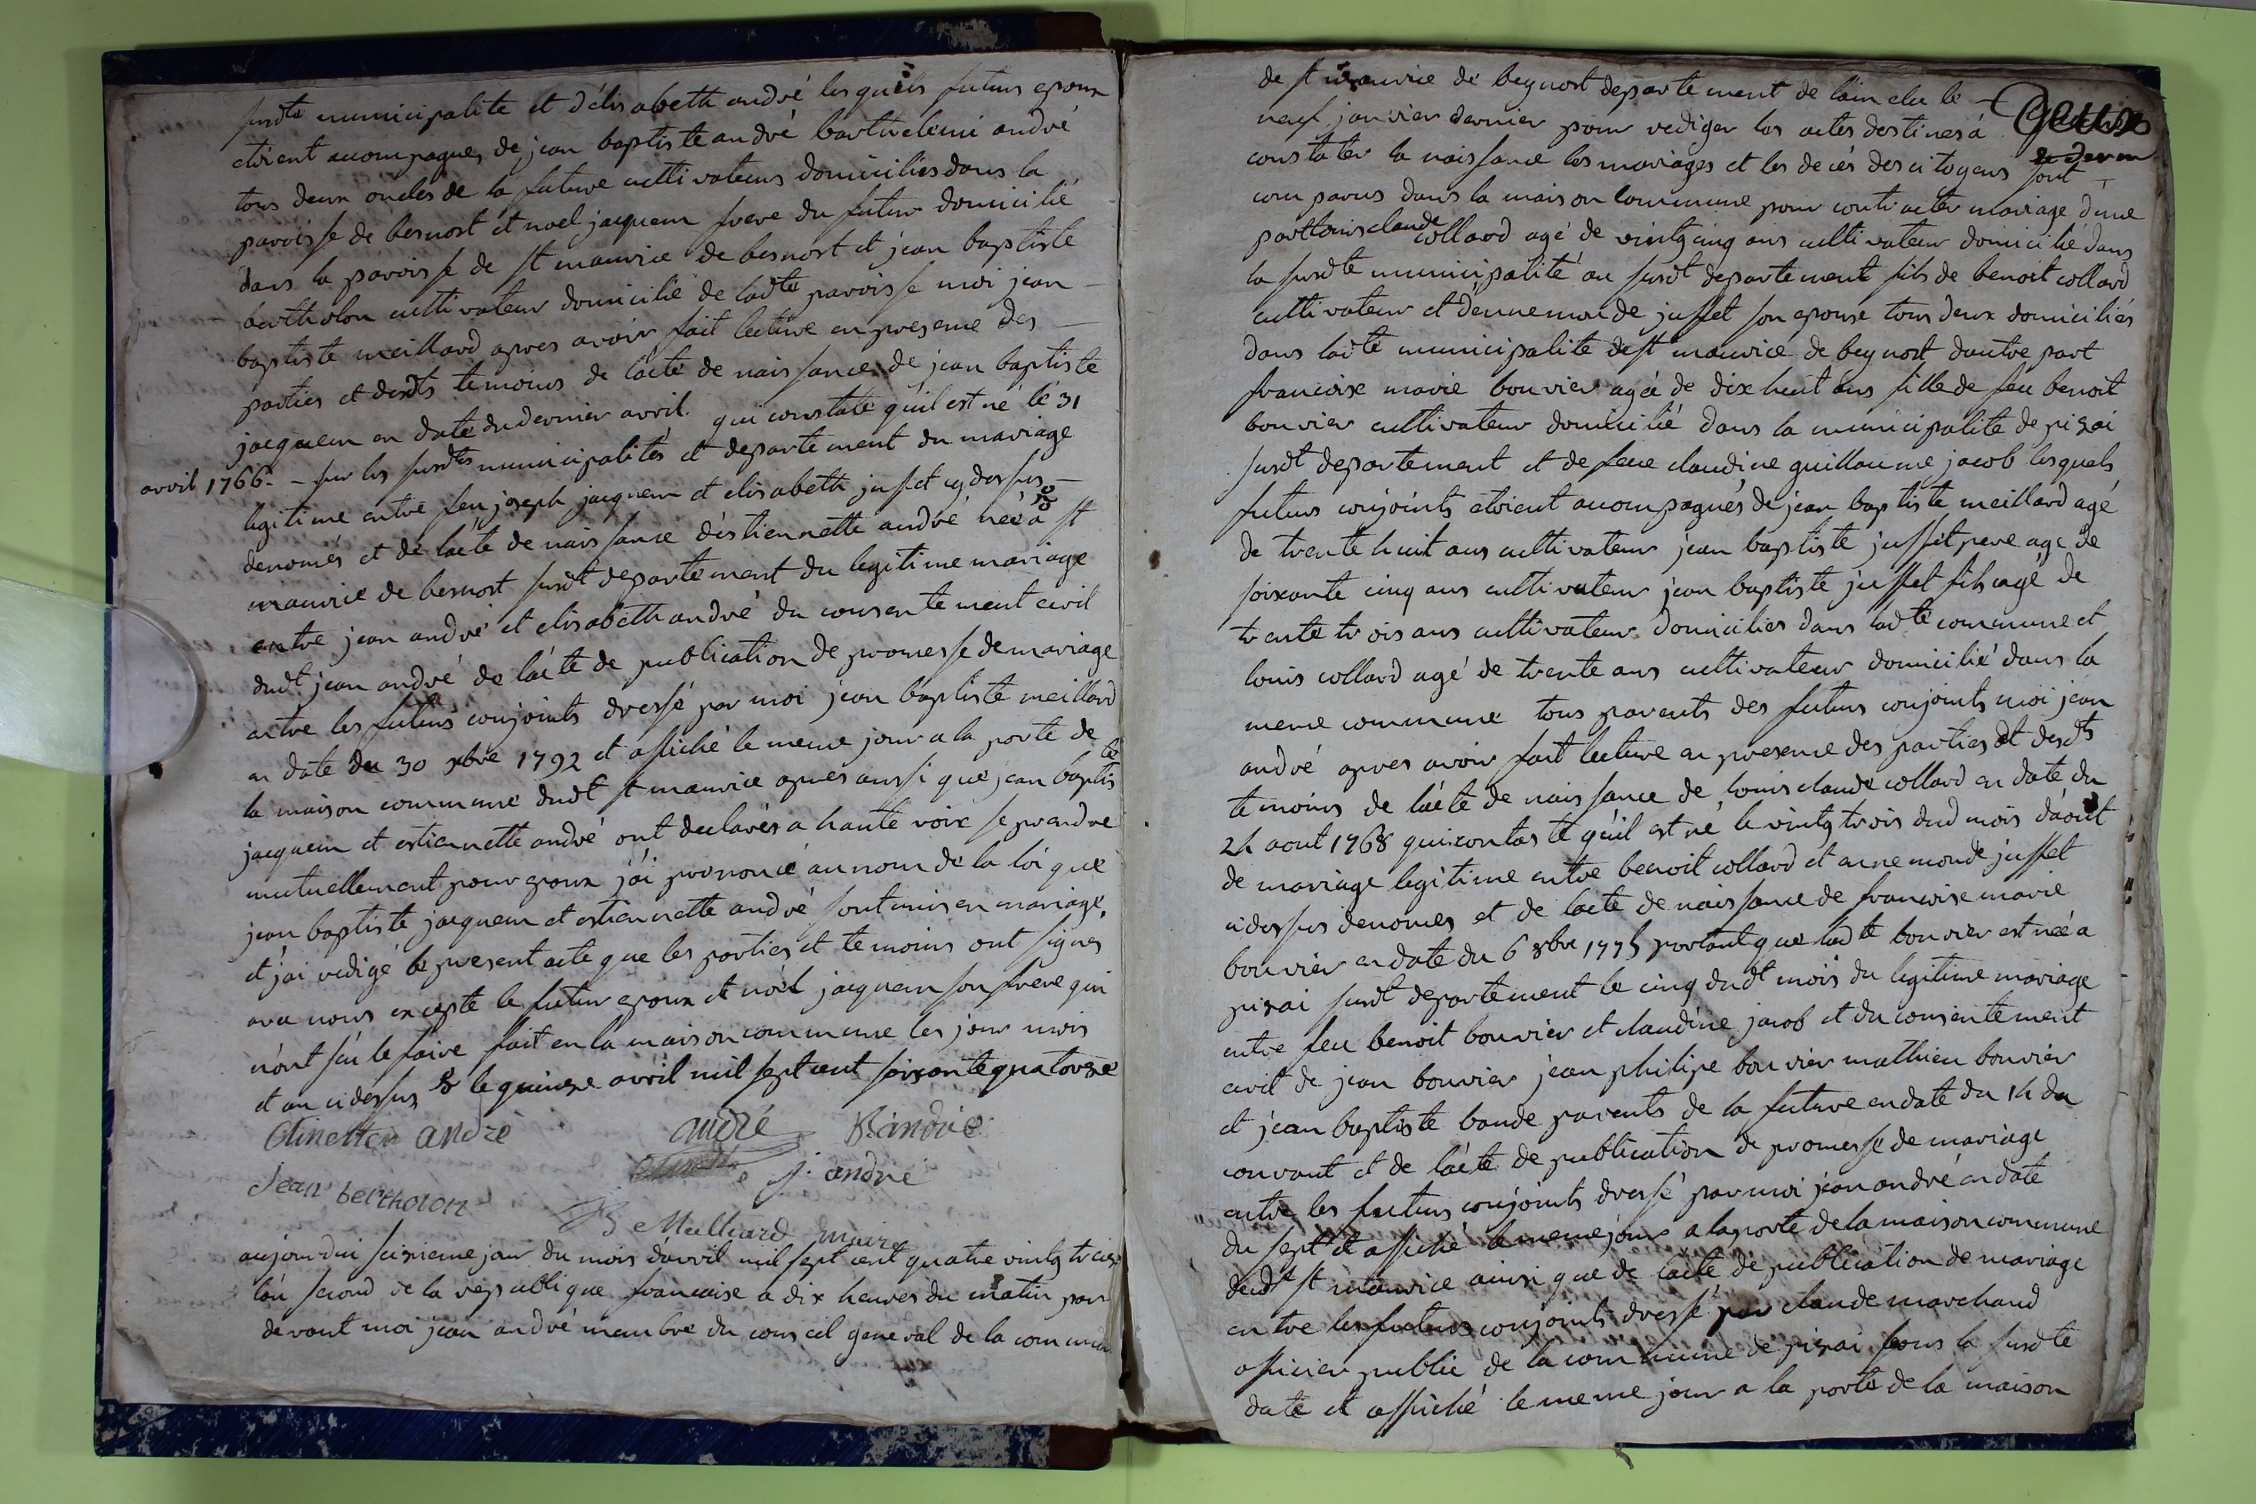 susdte municipalite et d'élisabeth andré lesquels futurs epoux
etoient accompagnes de jean baptiste andré barthelemi andré
tous deux oncles de la future cultivateurs domiciliés dans la
paroisse de besnost et noel jacquem frere du futur domicilié
dans la paroisse de st maurice de besnost et jean baptiste
bertholon cultivateur domicilié de ladte paroisse moi jean
baptiste meillard apres avoir fait lecture en presence des
parties et desdts temoins de l'acte de naissance de jean baptiste
jacquem en date du dernier avril qui constate qu'il est né le 31
avril 1766 - sur les susdtes municipalités et departement du mariage
legitime entre feu joseph jacquem et elisabeth jusset cy dessus
denomés et de l'acte de naissance d'estiennette andré née a st
maurice de besnost susdt departement du legitime mariage
entre jean andré et elisabeth andré du consentement civil
dudt jean andré de l'acte de publication de promesse de mariage
entre les futurs conjoints dressé par moi jean baptiste meillard
en date du 30 xbre 1792 et affiché le meme jour a la porte de
la maison commune dudt st maurice apres aussi que jean baptiste
jacquem et estiennette andré ont declarés a haute voix se prendre
mutuellement pour epoux j'ai prononcé au nom de la loi que
jean baptiste jacquem et estiennette andré sont unis en mariage
et j'ai redigé le present acte que les parties et temoins ont signes
avec nous excepte le futur epoux et noël jacquem son frere qui
n'ont sçu le faire fait en la maison commune les jour mois
et an cidessus & le quinze avril mil sept cent soixante quatorze
andré
andré B andrie
j. andrie
jean bertholon
JB Meilliard maire
aujourdui seizieme jour du mois d'avril mil sept cent quatre vingt treize
l'an second de la republique francaise a dix heures du matin par
devant moi jean andré membre du conseil general de la commune
de st maurice de beynost departement de l'ain elu le
neuf janvier dernier pour rediger les actes destinés a
constater la naissance les mariages et les decés des citoyens sont
comparus dans la maison commune pour contracter mariage d'une
part louis claude collard agé de vingt cinq ans cultivateur domicilié dans
la susdte municipalité au susdt departement fils de benoit collard
cultivateur et d'ennemonde jusset son epouse tous deux domiciliés
dans ladte municipalite de st maurice de beynost d'autre part
francoise marie bouvier agée de dix huit ans fille de feu benoit
bouvier cultivateur domicilié dans la municipalite de pizai
susdt departement et de feue claudine guillaume jacob lesquels
futurs conjoints etoient accompagnés de jean baptiste meillard agé
de trente huit ans cultivateur jean baptiste jusset pere agé de
soixante cinq ans cultivateur jean baptiste jusset fils agé de
trente trois ans cultivateur domicilies dans ladte commune et
louis collard agé de trente ans cultivateur domicilié dans la
meme commune tous parents des futurs conjoints moi jean
andré apres avoir fait lecture en presence des parties et desdts
temoins de l'acte de naissance de louis claude collard en date du
24 aout 1768 qui constate qu'il est né le vingt trois dud mois d'aout
de mariage legitime entre benoit collard et annemonde jusset
cidessus denomes et de l'acte de naissance de francoise marie
bouvier en date du 6 8bre 1775 portant que ladte bouvier est née a
pizai susdt departement le cinq dudt mois du legitime mariage
entre feu benoit bouvier et claudine jacob et du consentement
civil de jean bouvier jean philipe bouvier mathieu bouvier
et jean baptiste baude parents de la future en date du 14 du
courant et de l'acte de publication de promesse de mariage
entre les futurs conjoints dressé par moi jean andré en date
du sept et affiché le meme jour a la porte de la maison commune
dudt st maurice ainsi que de l'acte de publication de mariage
entre les futurs conjoints dressé par claude marchand
officier public de la commune de pizai sous la susdte
date et affiché le meme jour a la porte de la maison